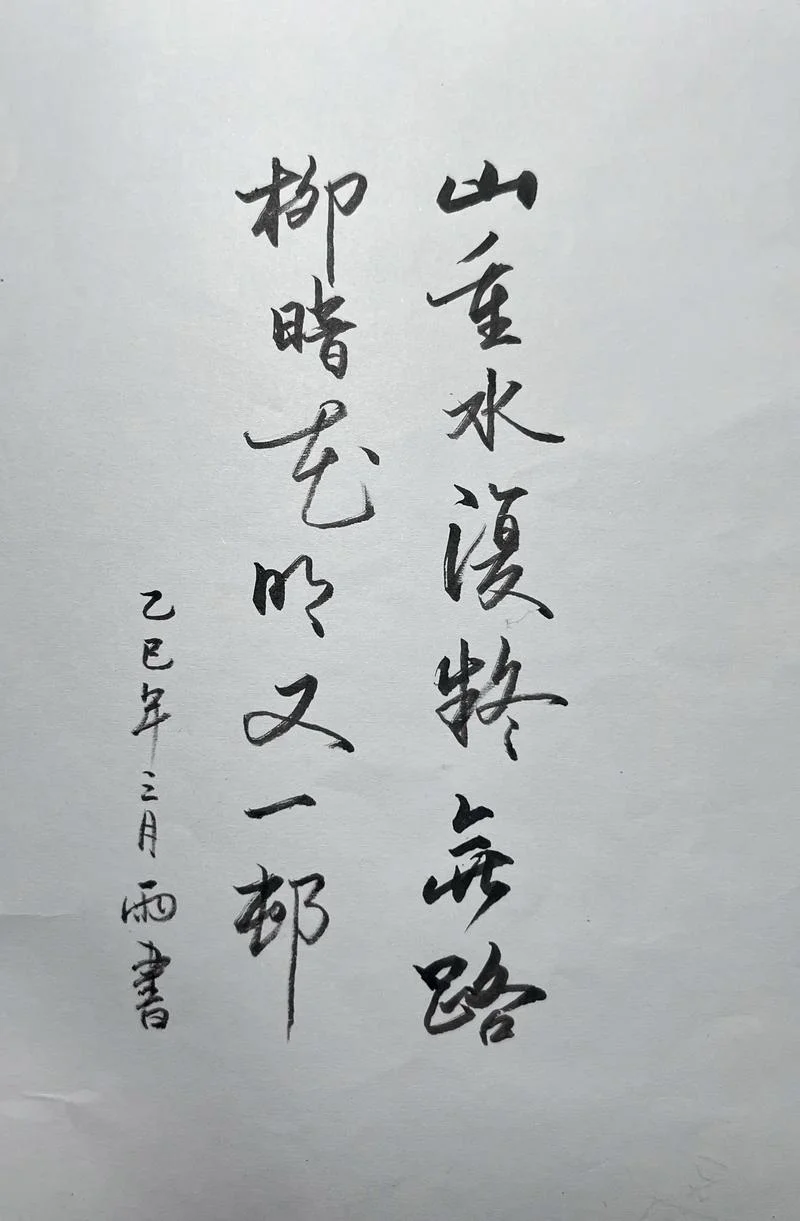 山重水復疑無路
柳暗花明又一邨
乙巳年三月雨書